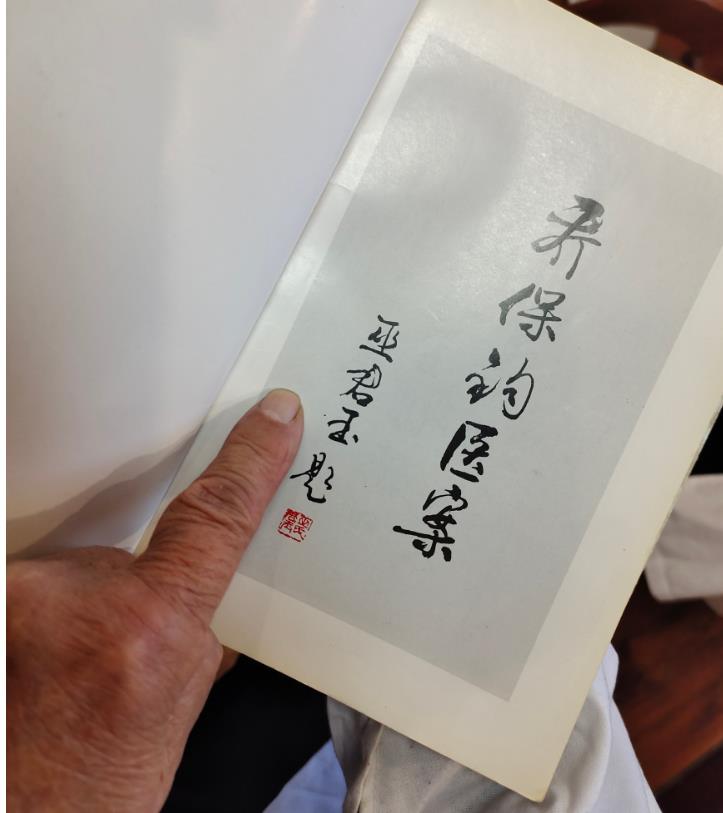 乔保钧医案
巫君玉题